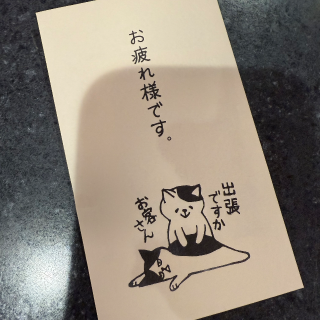 お疲れ様です。
出張
ですか
お客さん